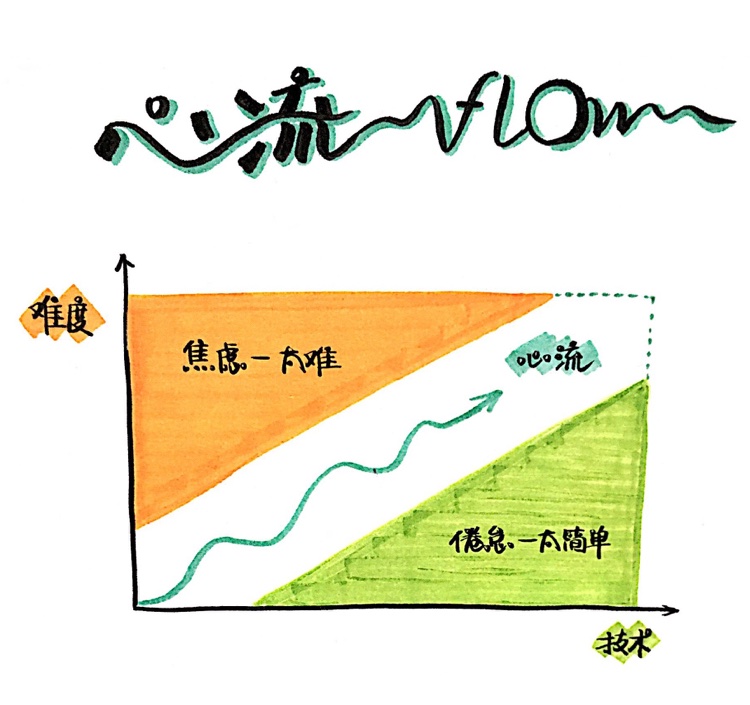 心流 flow
难度
焦虑-太难
心流
倦怠-太简单
技术